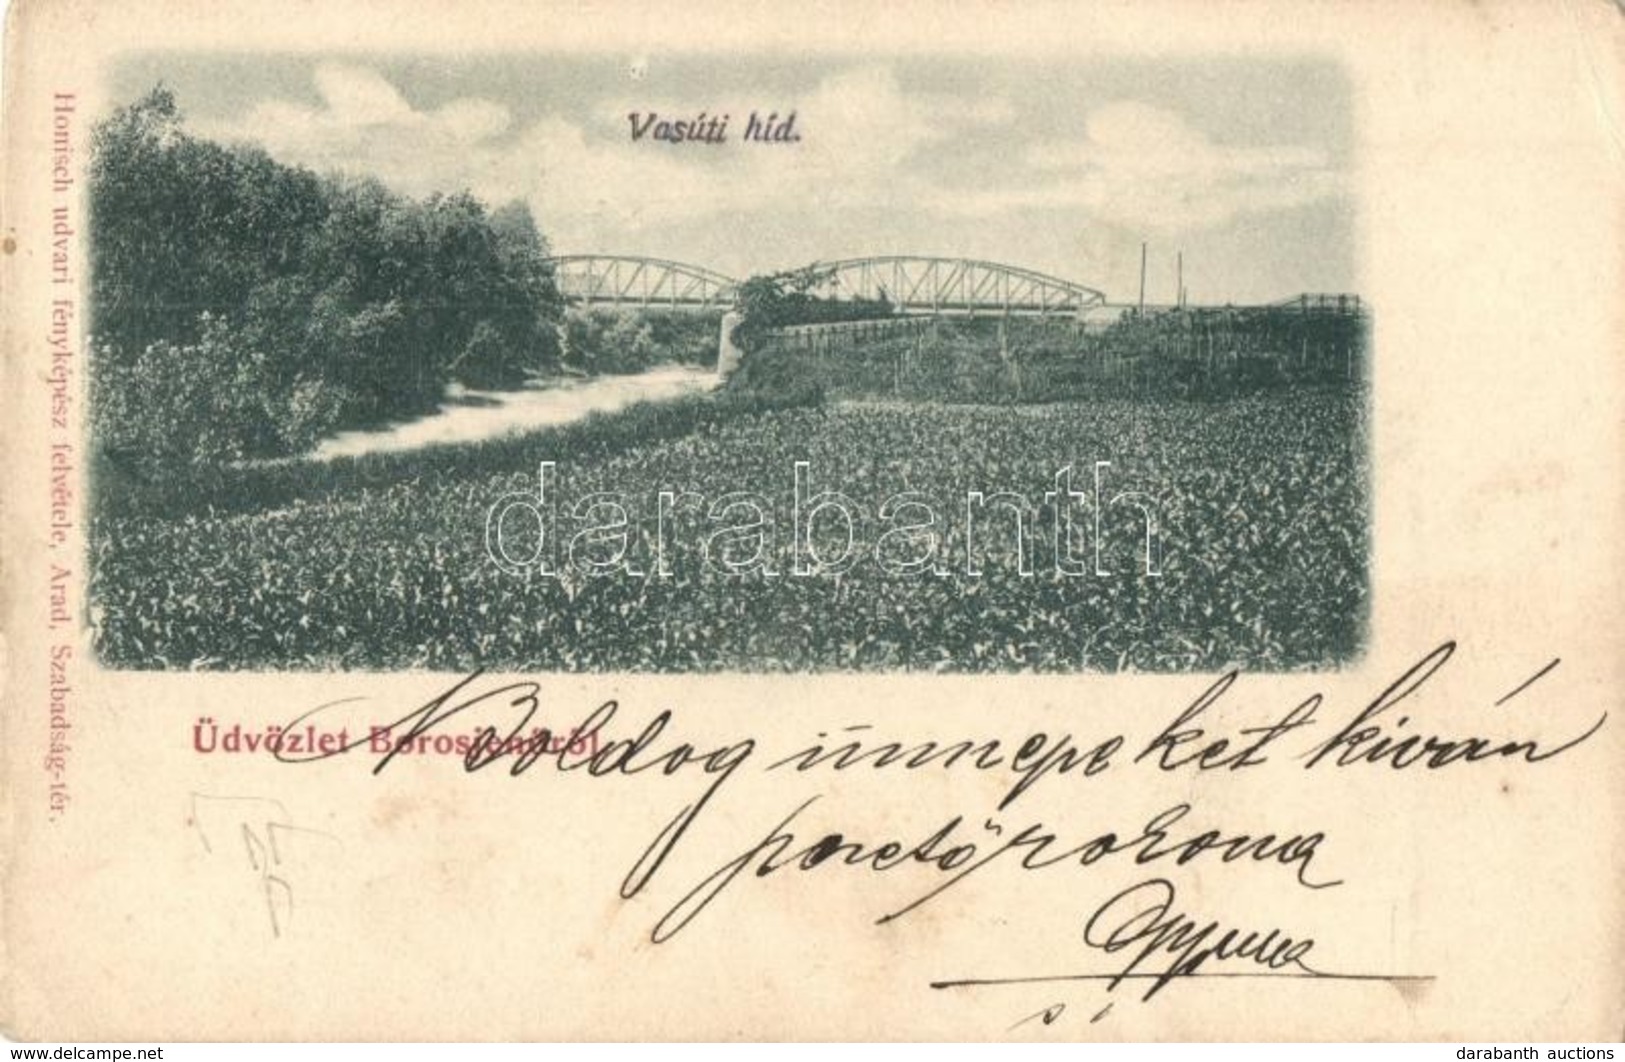 Vasúti híd.
Honisch udvari fényképész felvétele, Arad, Szabadság-tér.
darabanth
Üdvözlet Borosjenőről
Boldog ünnepeket kiván
www.delcampe.net
darabanth auctions